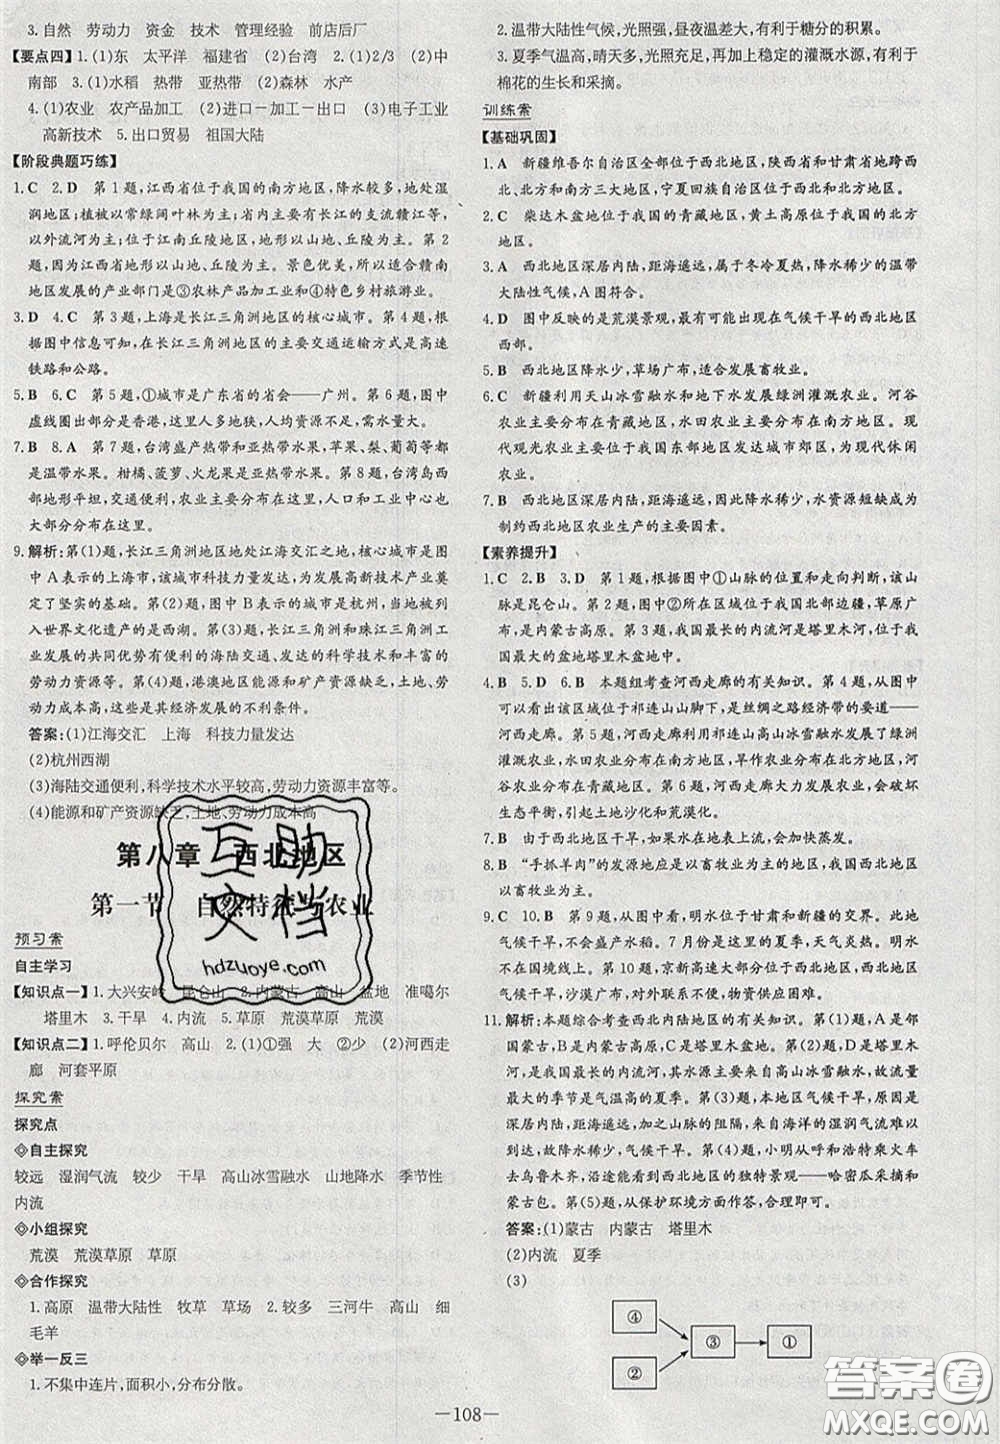 3.自然　劳动力　资金　技术　管理经验　前店后厂
【要点四】1.(1)东　太平洋　福建省　(2)台湾　2.(2)中
南部　3.(1)水稻　热带　亚热带　(2)森林　水产
4.(1)农业　农产品加工　(2)进口—加工—出口　(3)电子工业
高新技术　5.出口贸易　祖国大陆
【阶段典题巧练】
1.C　2.D　第1题,江西省位于我国的南方地区,降水较多,地处湿
润地区;植被以常绿阔叶林为主;省内主要有长江的支流赣江等,
以外流河为主;位于江南丘陵地区,地形以山地、丘陵为主。第2
题,因为江西省地形以山地、丘陵为主。景色优美,所以适合赣南
地区发展的产业部门是③农林产品加工业和④特色乡村旅游业。
3.D　4.C　第3题,上海是长江三角洲地区的核心城市。第4题,根
据图中信息可知,在长江三角洲地区的主要交通运输方式是高速
铁路和公路。
5.B　6.C　第5题,①城市是广东省的省会——广州。第6题,图中
虚线圈出部分是香港,这里人多地狭,土地面积不足,需水量大。
7.B　8.A　第7题,台湾盛产热带和亚热带水果,苹果、梨、葡萄等都
是温带水果。柑橘、菠萝、火龙果是亚热带水果。第8题,台湾岛西
部地形平坦,交通便利,农业主要分布在这里,人口和工业中心也
大部分分布在这里。
9.解析:第(1)题,长江三角洲地区地处江海交汇之地,核心城市是
图中A表示的上海市,该城市科技力量发达,为发展高新技术产业奠
定了坚实的基础。第(2)题,图中B表示的城市是杭州,当地被列
入世界文化遗产的是西湖。第(3)题,长江三角洲和珠江三角洲工
业发展的共同优势有便利的海陆交通、发达的科学技术和丰富的
劳动力资源等。第(4)题,港澳地区能源和矿产资源缺乏,土地、劳
动力成本高,这些是其经济发展的不利条件。
答案:(1)江海交汇　上海　科技力量发达
(2)杭州西湖
(3)海陆交通便利,科学技术水平较高,劳动力资源丰富等。
(4)能源和矿产资源缺乏,土地、劳动力成本高
第八章　西北地区
第一节　自然特征与农业
预习案
自主学习
【知识点一】1.大兴安岭　昆仑山　2.内蒙古　高山　盆地　准噶尔
塔里木　3.干旱　4.内流　5.草原　荒漠草原　荒漠
【知识点二】1.呼伦贝尔　高山　2.(1)①强　大　②少　(2)河西走
廊　河套平原
探究案
探究点
◇自主探究
较远　湿润气流　较少　干旱　高山冰雪融水　山地降水　季节性
内流
◇小组探究
荒漠　荒漠草原　草原
◇合作探究
1.高原　温带大陆性　牧草　草场　2.较多　三河牛　高山　细
毛羊
◇举一反三
1.不集中连片,面积小,分布分散。
2.温带大陆性气候,光照强,昼夜温差大,有利于糖分的积累。
3.夏季气温高,晴天多,光照充足,再加上稳定的灌溉水源,有利于
棉花的生长和采摘。
训练案
【基础巩固】
1.A　新疆维吾尔自治区全部位于西北地区,陕西省和甘肃省地跨西
北、北方和南方三大地区,宁夏回族自治区位于西北和北方地区。
2.C　柴达木盆地位于我国的青藏地区,黄土高原位于我国的北方
地区。
3.A　西北地区深居内陆,距海遥远,属于冬冷夏热,降水稀少的温带
大陆性气候,A图符合。
4.D　图中反映的是荒漠景观,最有可能出现在气候干旱的西北地区
西部。
5.B　西北地区降水少,草场广布,适合发展畜牧业。
6.C　新疆利用天山冰雪融水和地下水发展绿洲灌溉农业。河谷
农业主要分布在青藏地区,水田农业主要分布在南方地区。现
代观光农业主要分布在我国东部地区发达城市郊区,为现代休闲
农业。
7.B　西北地区深居内陆,距海遥远,因此降水稀少,水资源短缺成为
制约西北地区农业生产的主要因素。
【素养提升】
1.C　2.B　3.D　第1题,根据图中①山脉的位置和走向判断,该山
脉是昆仑山。第2题,图中②所在区域位于我国北部边疆,草原广
布,是内蒙古高原。第3题,我国最长的内流河是塔里木河,位于我
国最大的盆地塔里木盆地南部。
4.B　5.D　6.B　本题组考查河西走廊的有关知识。第4题,从图中
可以看出,该区域位于祁连山山脚下,是丝绸之路经济带的要道——
河西走廊。第5题,河西走廊利用祁连山高山冰雪融水发展了绿洲
灌溉农业,水田农业分布在南方地区,旱作农业分布在北方地区,
河谷农业分布在青藏地区。第6题,河西走廊大力发展农业,会破坏
生态平衡,引起土地沙化和荒漠化。
7.B　由于西北地区干旱,如果水在地上流,会加快蒸发。
8.B　“手抓羊肉”的发源地应是以畜牧业为主的地区,西北地区以
畜牧业为主。
9.C　10.B　第9题,从图中看,明水位于甘肃和新疆的交界。此地
气候干旱,不会盛产水稻。7月份是这里的夏季,天气炎热。明水
不在国境线上。第10题,京新高速大部分在我国西北地区,这里
气候干旱,沙漠广布,对外联系不便,人烟稀少,物资供应困难。
11.解析:本题综合考查西北内陆地区的有关知识。第(1)题,A是邻
国蒙古,B是内蒙古高原,C是塔里木盆地。第(2)题,该地区的河
流主要是内流河,其水源主要来自高山冰雪融水,因此河流流量
最大的季节是气温高的夏季。第(3)题,本地区气候干旱,原因是
深居内陆,距海遥远,加之山脉的阻隔,来自海洋的湿润气流难以
到达,故降水稀少,气候干旱。第(4)题,小明从呼和浩特乘火车
去乌鲁木齐,沿途能看到西北地区的独特景观——哈密瓜采摘和
蒙古包。第(5)题,从保护环境方面作答,合理即可。
答案:(1)蒙古　内蒙古　塔里木
(2)内流　夏季
(3)
④
③　①
②
—108—
互助
文档
hdzuoye.com
答案圈
MXQE.COM